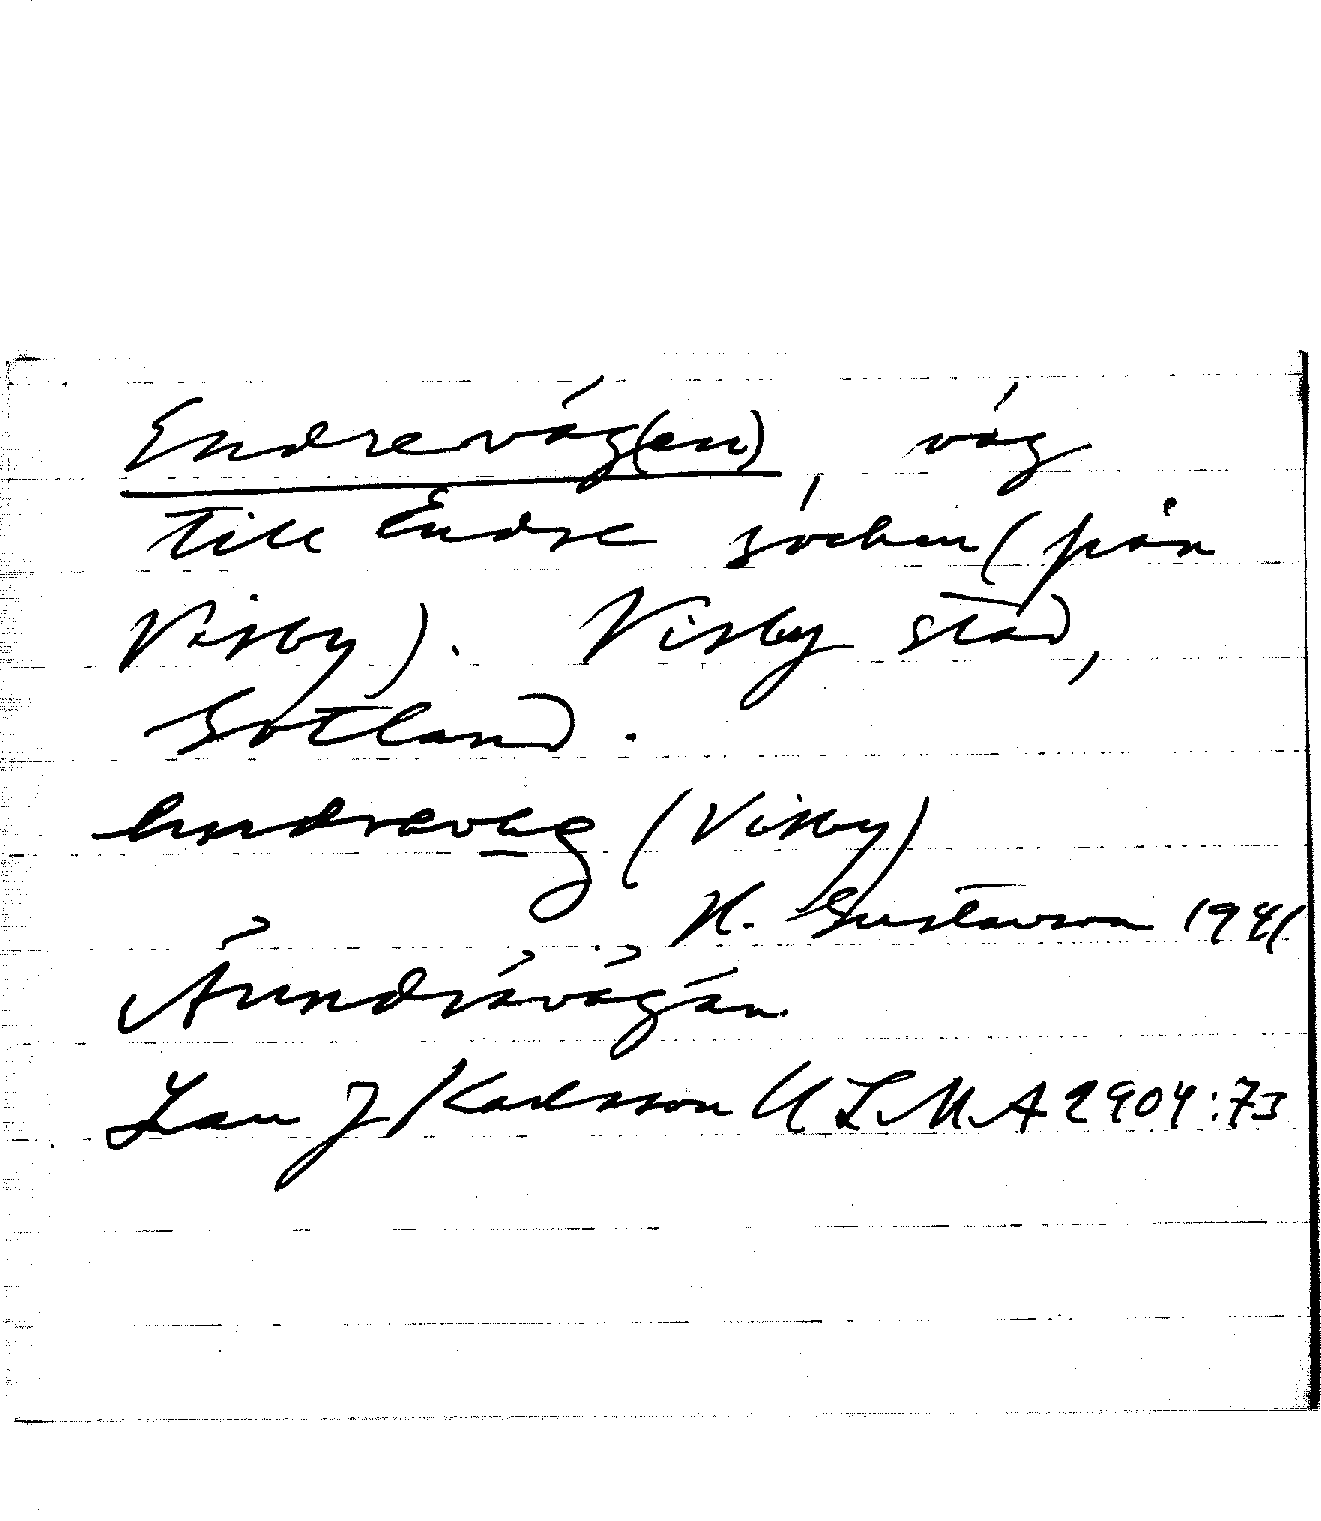 Endreväg(en), väg
till Endre socken (från
Visby). Visby stad,
Gotland.
(Visby)
H. Gustavson 1941
Ändrävägän
Lars J Karlsson ULMA 2904:73